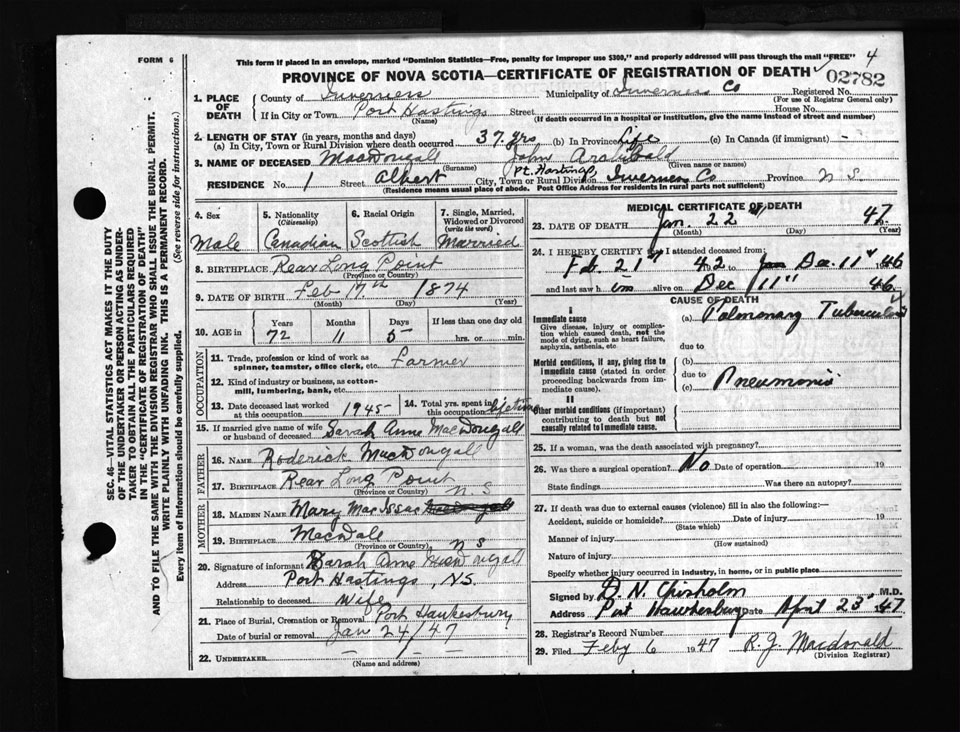 FORM 6
This form if placed in an envelope, marked "Dominion Statistics—Free, penalty for improper use $300," and properly addressed will pass through the mail "FREE" 4
PROVINCE OF NOVA SCOTIA—CERTIFICATE OF REGISTRATION OF DEATH
02782
1. PLACE OF DEATH
County of Inverness Municipality of Inverness Co Registered No.
(For use of Registrar General only)
If in City or Town Port Hastings Street House No.
(Name) (If death occurred in a hospital or institution, give the name instead of street and number)
2. LENGTH OF STAY (in years, months and days)
(a) In City, Town or Rural Division where death occurred 37 yrs (b) In Province Life (c) In Canada (if immigrant) —
3. NAME OF DECEASED MacDougall John Archibald
(Surname) (Given name or names)
RESIDENCE No. 1 Street Albert City, Town or Rural Division Pt. Hastings, Inverness Co Province N S.
(Residence means usual place of abode. Post Office Address for residents in rural parts not sufficient)
4. Sex
Male
5. Nationality (Citizenship)
Canadian
6. Racial Origin
Scottish
7. Single, Married, Widowed or Divorced (write the word)
Married
8. BIRTHPLACE Rear Long Point
(Province or Country)
9. DATE OF BIRTH Feb 17th 1874
(Month) (Day) (Year)
10. AGE in
Years Months Days If less than one day old
72 11 5 hrs. or min.
OCCUPATION
11. Trade, profession or kind of work as spinner, teamster, office clerk, etc. Farmer
12. Kind of industry or business, as cotton-mill, lumbering, bank, etc.
13. Date deceased last worked at this occupation 1945
14. Total yrs. spent in this occupation lifetime
15. If married give name of wife or husband of deceased Sarah Anne MacDougall
FATHER
16. NAME Roderick MacDougall
17. BIRTHPLACE Rear Long Point N. S
(Province or Country)
MOTHER
18. MAIDEN NAME Mary MacIssac
19. BIRTHPLACE MacDale N S
(Province or Country)
20. Signature of informant Sarah Anne MacDougall
Address Port Hastings, N.S.
Relationship to deceased Wife
21. Place of Burial, Cremation or Removal Port Hawkesbury
Date of burial or removal Jan 24/47
22. UNDERTAKER — — —
(Name and address)
MEDICAL CERTIFICATE OF DEATH
23. DATE OF DEATH Jan. 22" 47
(Month) (Day) (Year)
24. I HEREBY CERTIFY that I attended deceased from:
Feb 21" 42 to Dec. 11" 1946
and last saw him alive on Dec 11" 46
CAUSE OF DEATH
I
Immediate cause
Give disease, injury or complication which caused death, not the mode of dying, such as heart failure, asphyxia, asthenia, etc
(a) Pulmonary Tuberculosis
due to
Morbid conditions, if any, giving rise to immediate cause (stated in order proceeding backwards from immediate cause).
(b)
due to
(c) Pneumonia
II
Other morbid conditions (if important) contributing to death but not causally related to immediate cause.
25. If a woman, was the death associated with pregnancy?
26. Was there a surgical operation? No Date of operation 19
State findings Was there an autopsy?
27. If death was due to external causes (violence) fill in also the following:—
Accident, suicide or homicide? Date of injury 19
(State which)
Manner of injury
(How sustained)
Nature of injury
Specify whether injury occurred in industry, in home, or in public place
Signed by D. N. Chisholm M.D.
Address Port Hawkesbury Date April 23" 1947
28. Registrar's Record Number
29. Filed Feby 6 1947 R. J. Macdonald
(Division Registrar)
SEC. 46—VITAL STATISTICS ACT MAKES IT THE DUTY
OF THE UNDERTAKER OR PERSON ACTING AS UNDER-
TAKER TO OBTAIN ALL THE PARTICULARS REQUIRED
IN THE "CERTIFICATE OF REGISTRATION OF DEATH"
AND TO FILE THE SAME WITH THE DIVISION REGISTRAR WHO SHALL ISSUE THE BURIAL PERMIT.
WRITE PLAINLY WITH UNFADING INK. THIS IS A PERMANENT RECORD.
Every item of information should be carefully supplied. (See reverse side for instructions.)